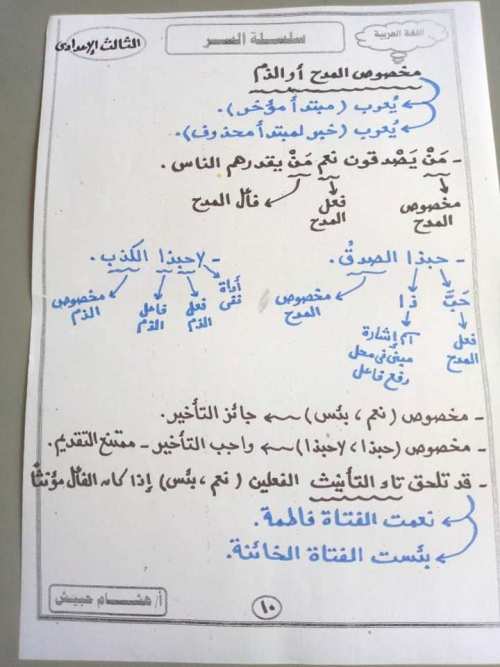 اللغة العربية
سلسلة السر
الثالث الإعدادى
مخصوص المدح أو الذم
يُعرب (مبتدأ مؤخر).
يُعرب (خبر لمبتدأ محذوف).
- مَنْ يَصْدقون نعم مَنْ يقدرهم الناس.
مخصوص المدح
فعل المدح
فاعل المدح
- حبذا الصدقُ.
- لاحبذا الكذب.
حَبَّ
ذا
مخصوص المدح
أداة نفى
فعل الذم
فاعل الذم
مخصوص الذم
فعل المدح
اسم إشارة
مبنى فى محل
رفع فاعل
- مخصوص (نعم، بئس) جائز التأخير.
- مخصوص (حبذا، لاحبذا) واجب التأخير - ممتنع التقديم.
- قد تلحق تاء التأنيث الفعلين (نعم، بئس) إذا كان الفاعل مؤنثًا
نعمت الفتاة فاطمة.
بئست الفتاة الخائنة.
أ/ هشام حبيش
١٠